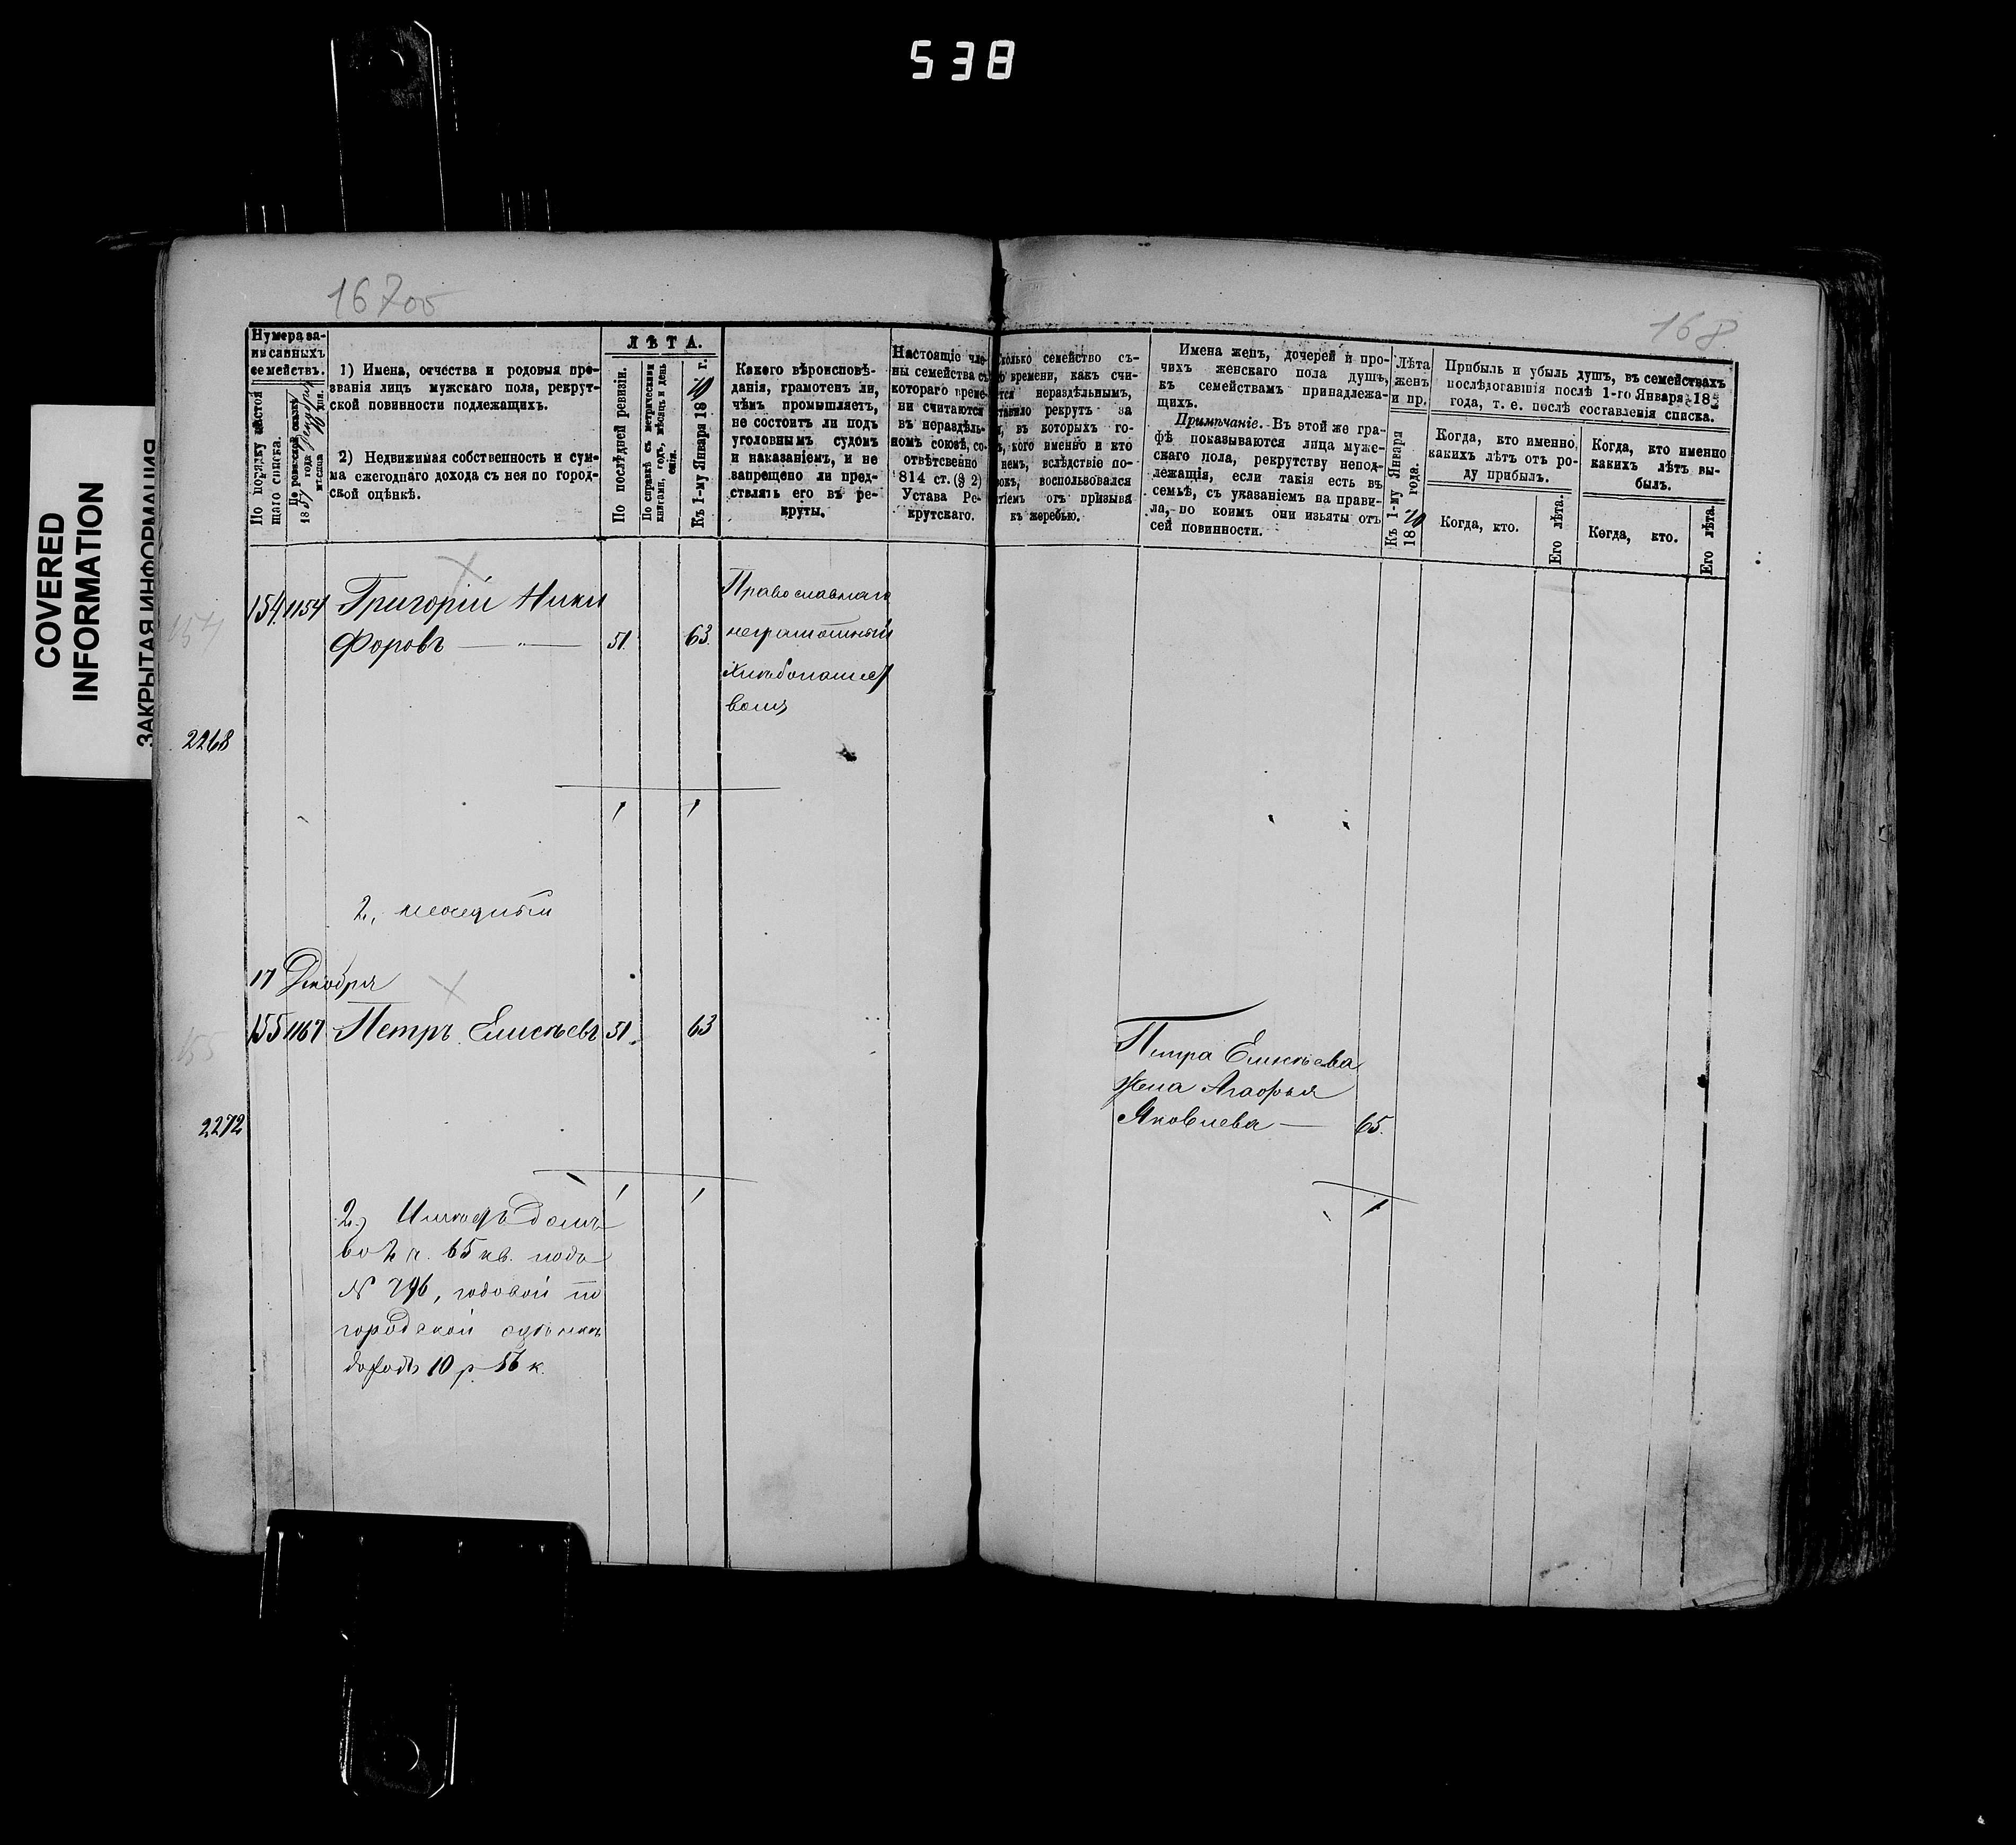 538
COVERED
INFORMATION
ЗАКРЫТАЯ ИНФОРМАЦИЯ
167об
168
Нумера за-
писанныхъ
семействъ.
По порядку настоя
щаго списка.
По ревизской сказкѣ
1857 года
мѣсяца дня.
1) Имена, отчества и родовыя про-
званія лицъ мужскаго пола, рекрут-
ской повинности подлежащихъ.
2) Недвижимая собственность и сум-
ма ежегоднаго дохода съ нея по город-
ской оцѣнкѣ.
ЛѢТА.
По послѣдней ревизіи.
По справкѣ съ метрическими
книгами, годъ, мѣсяцъ и день
Къ 1-му Января 1870 г.
Какого вѣроисповѣ-
данія, грамотенъ ли,
чѣмъ промышляетъ,
не состоитъ ли подъ
уголовнымъ судомъ
и наказаніемъ, и не
запрещено ли пред-
ставлять его въ ре-
круты.
Настоящіе чле-
ны семейства съ
котораго време-
ни считаются
въ нераздѣль-
номъ союзѣ, со-
отвѣтсвенно
814 ст. (§ 2)
Устава Ре-
крутскаго.
колько семейство съ-
о времени, какъ счи-
тся нераздѣльнымъ,
тавило рекрутъ за
, въ которыхъ го-
ъ, кого именно и кто
немъ, вслѣдствіе по-
окъ, воспользовался
тіемъ отъ призыва
къ жеребью.
Имена женъ, дочерей и про-
чихъ женскаго пола душъ,
къ семействамъ принадлежа-
щихъ.
Примѣчаніе. Въ этой же гра-
фѣ показываются лица муже-
скаго пола, рекрутству непод-
лежащія, если такія есть въ
семьѣ, съ указаніемъ на прави-
ла, по коимъ они изъяты отъ
сей повинности.
Лѣта
женъ
и пр.
Къ 1-му Января
1870 года.
Прибыль и убыль душъ, въ семействахъ
послѣдовавшія послѣ 1-го Января 18
года, т. е. послѣ составленія списка.
Когда, кто именно,
какихъ лѣтъ отъ ро-
ду прибылъ.
Когда, кто именно
какихъ лѣтъ вы-
былъ.
Когда, кто.
Его лѣта.
Когда, кто.
Его лѣта.
154
154. 1154 Григорій Ники
форовъ — „ — 51. 63.
Православнаго
неграмотный
хлѣбопашест
вомъ
2268
1 1
2., неосѣдлый
17 Декабря
155
155 1167 Петръ Елисѣевъ 51. 63
Петра Елисѣева
жена Агафья
Яковлева — 65.
2272
1 1
1
2.) Имѣетъ домъ
во 2 ч. 65 кв. подъ
№ 796, годовой по
городской оцѣнкѣ
доходъ 10 р 56 к.